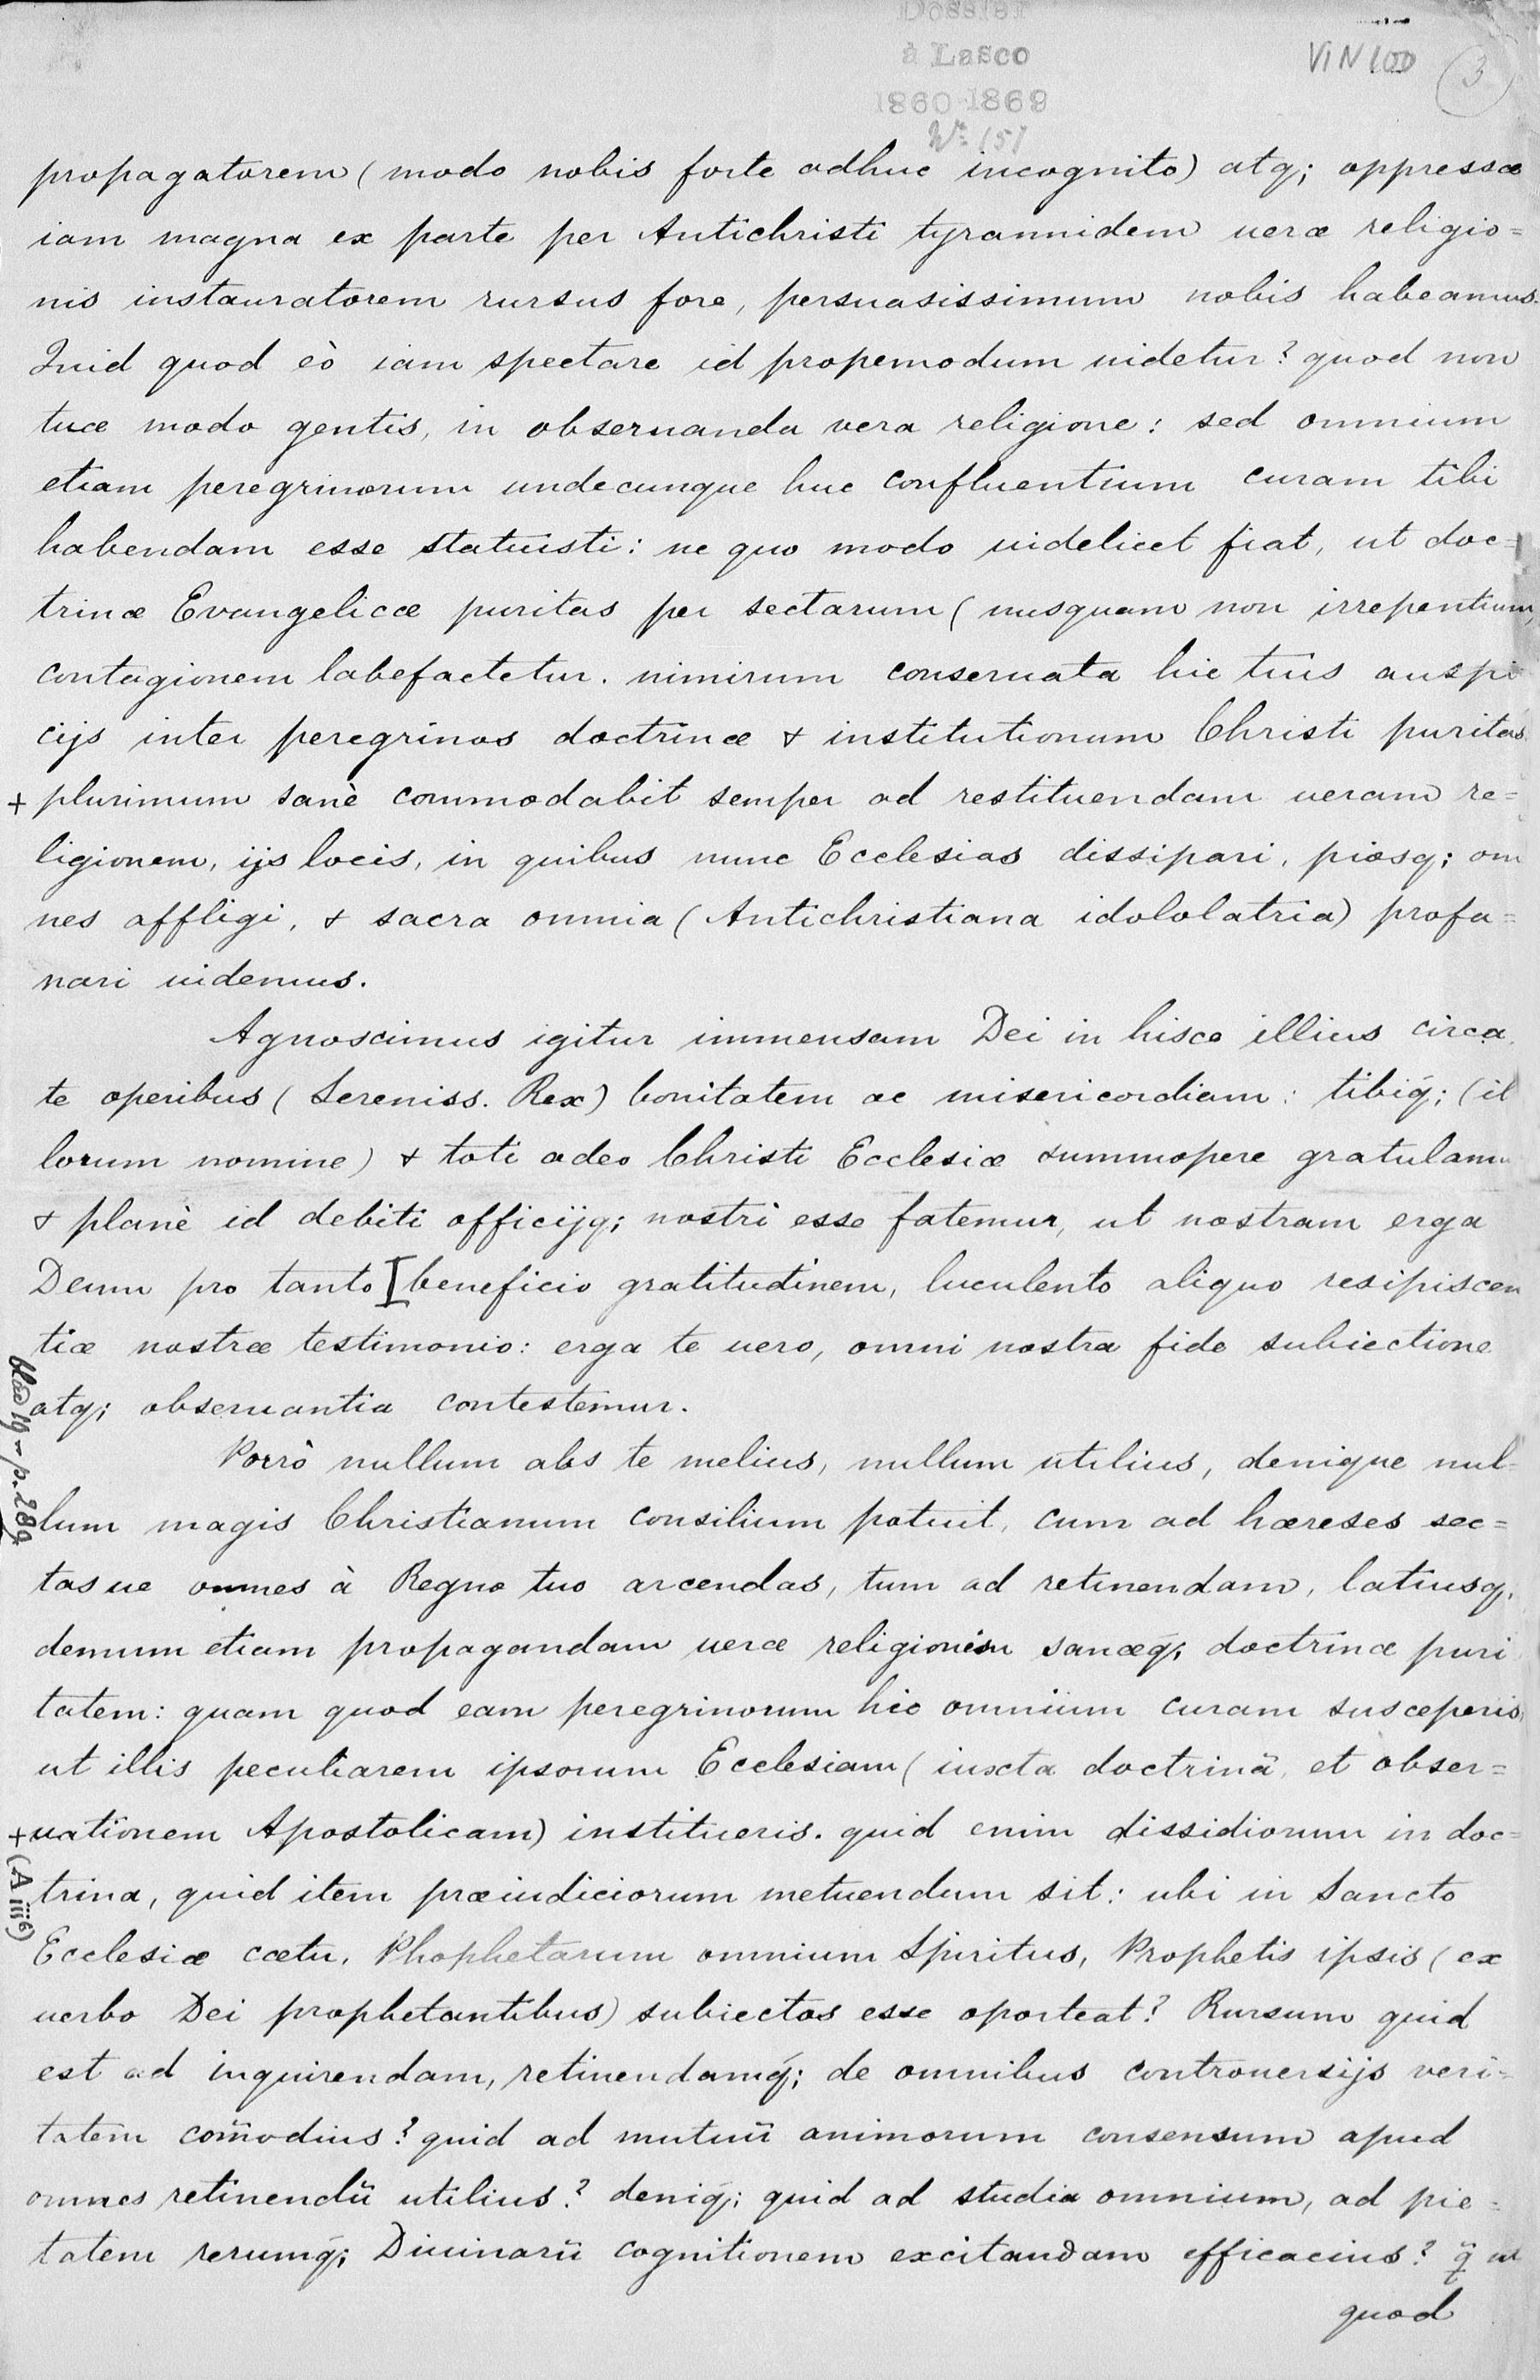 Dossier
à Lasco
1860-1869
No (5)
VIN 100
3
propagatorem (modo nobis forte adhuc incognito) atq; oppressæ
iam magna ex parte per Antichristi tyrannidem ueræ religio=
nis instauratorem rursus fore, persuasissimum nobis habeamus.
Quid quod eò iam spectare id propemodum uidetur? quod non
tuæ modo gentis, in obseruanda vera religione: sed omnium
etiam peregrinorum undecunque huc confluentium curam tibi
habendam esse statuisti: ne quo modo uidelicet fiat, ut doc=
trinæ Evangelicæ puritas per sectarum (nusquam non irrepentium,
contagionem labefactetur. nimirum conseruata hic tuis auspi
cijs inter peregrinos doctrinæ & institutionum Christi puritas
+ plurimum sanè commodabit semper ad restituendam ueram re=
ligionem, ijs locis, in quibus nunc Ecclesias dissipari, piosq; om
nes affligi, & sacra omnia (Antichristiana idololatria) profa=
nari uidemus.
Agnoscimus igitur immensam Dei in hisce illius circa
te operibus (Sereniss. Rex) bonitatem ac misericordiam: tibiq́; (il
lorum nomine) & toti adeo Christi Ecclesiæ summopere gratulamu
& planè id debiti officijq; nostri esse fatemur, ut nostram erga
Deum pro tanto [beneficio gratitudinem, luculento aliquo resipiscen
tiæ nostræ testimonio: erga te uero, omni nostra fide subiectione
atq; obseruantia contestemur.
blad 19 - p. 289
Porrò nullum abs te melius, nullum utilius, denique nul=
lum magis Christianum consilium potuit, cum ad hæreses sec=
tasue omnes à Regno tuo arcendas, tum ad retinendam, latiusq,
demum etiam propagandam ueræ religionisu sanæq́; doctrinæ puri
tatem: quam quod eam peregrinorum hic omnium curam susceperis,
ut illis peculiarem ipsorum Ecclesiam (iuxta doctrinā et obser=
+ uationem Apostolicam) institueris. quid enim dissidiorum in doc=
(A iiij6)
trina, quid item præiudiciorum metuendum sit: ubi in Sancto
Ecclesiæ cœtu, Phophetarum omnium Spiritus, Prophetis ipsis (ex
uerbo Dei prophetantibus) subiectos esse oporteat? Rursum quid
est ad inquirendam, retinendamq́; de omnibus controuersijs veri=
tatem com̄odius? quid ad mutuū animorum consensum apud
omnes retinendū utilius? deniq́; quid ad studia omnium, ad pie=
tatem rerumq́; Diuinarū cognitionem excitandam efficacius? q̃ ut
quod